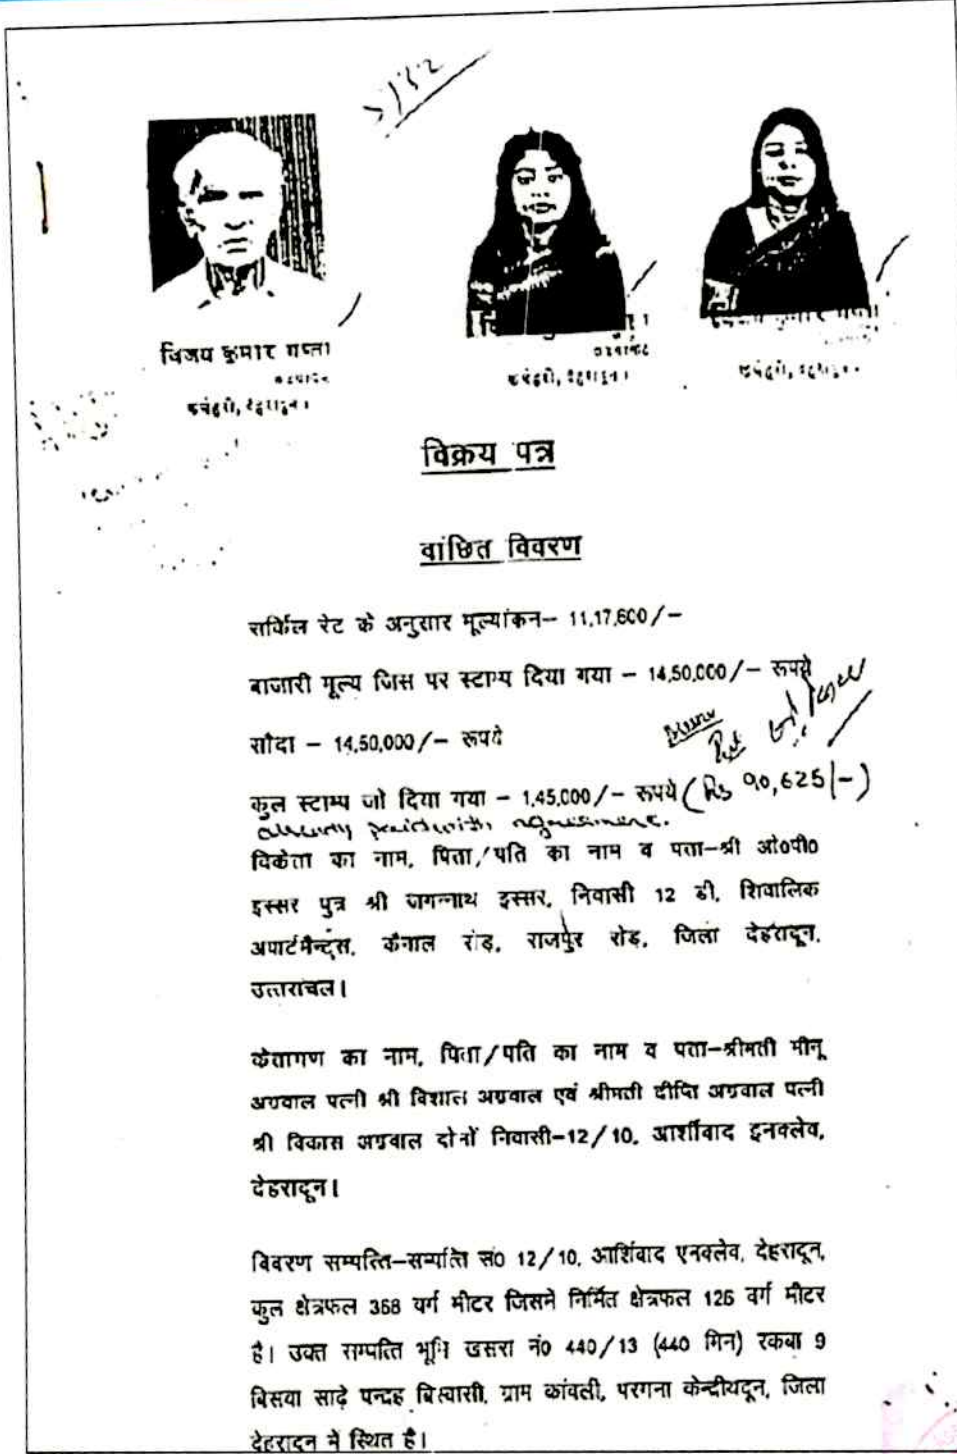 विजय कुमार गुप्ता
कचेहरी, देहरादून।
कचेहरी, देहरादून।
कचेहरी, देहरादून।
विक्रय पत्र
वांछित विवरण
सर्किल रेट के अनुसार मूल्यांकन– 11,17,600/–
बाजारी मूल्य जिस पर स्टाम्प दिया गया – 14,50,000/– रूपये
सौदा – 14,50,000/– रूपये
कुल स्टाम्प जो दिया गया – 1,45,000/– रूपये (Rs 90,625/–)
already paid with agreement.
विकेता का नाम, पिता/पति का नाम व पता–श्री ओ०पी०
इस्सर पुत्र श्री जगन्नाथ इस्सर, निवासी 12 डी, शिवालिक
अपार्टमैन्ट्स, कैनाल रोड़, राजपुर रोड़, जिला देहरादून,
उत्तरांचल।
केतागण का नाम, पिता/पति का नाम व पता–श्रीमती मीनू
अग्रवाल पत्नी श्री विशाल अग्रवाल एवं श्रीमती दीप्ति अग्रवाल पत्नी
श्री विकास अग्रवाल दोनों निवासी–12/10, आर्शीवाद इनक्लेव,
देहरादून।
विवरण सम्पत्ति–सम्पत्ति सं0 12/10, आर्शिवाद एनक्लेव, देहरादून,
कुल क्षेत्रफल 368 वर्ग मीटर जिसमें निर्मित क्षेत्रफल 126 वर्ग मीटर
है। उक्त सम्पत्ति भूमि खसरा नं0 440/13 (440 मिन) रकबा 9
बिसवा साढ़े पन्द्रह बिस्वासी, ग्राम कांवली, परगना केन्दीयदून, जिला
देहरादून में स्थित है।